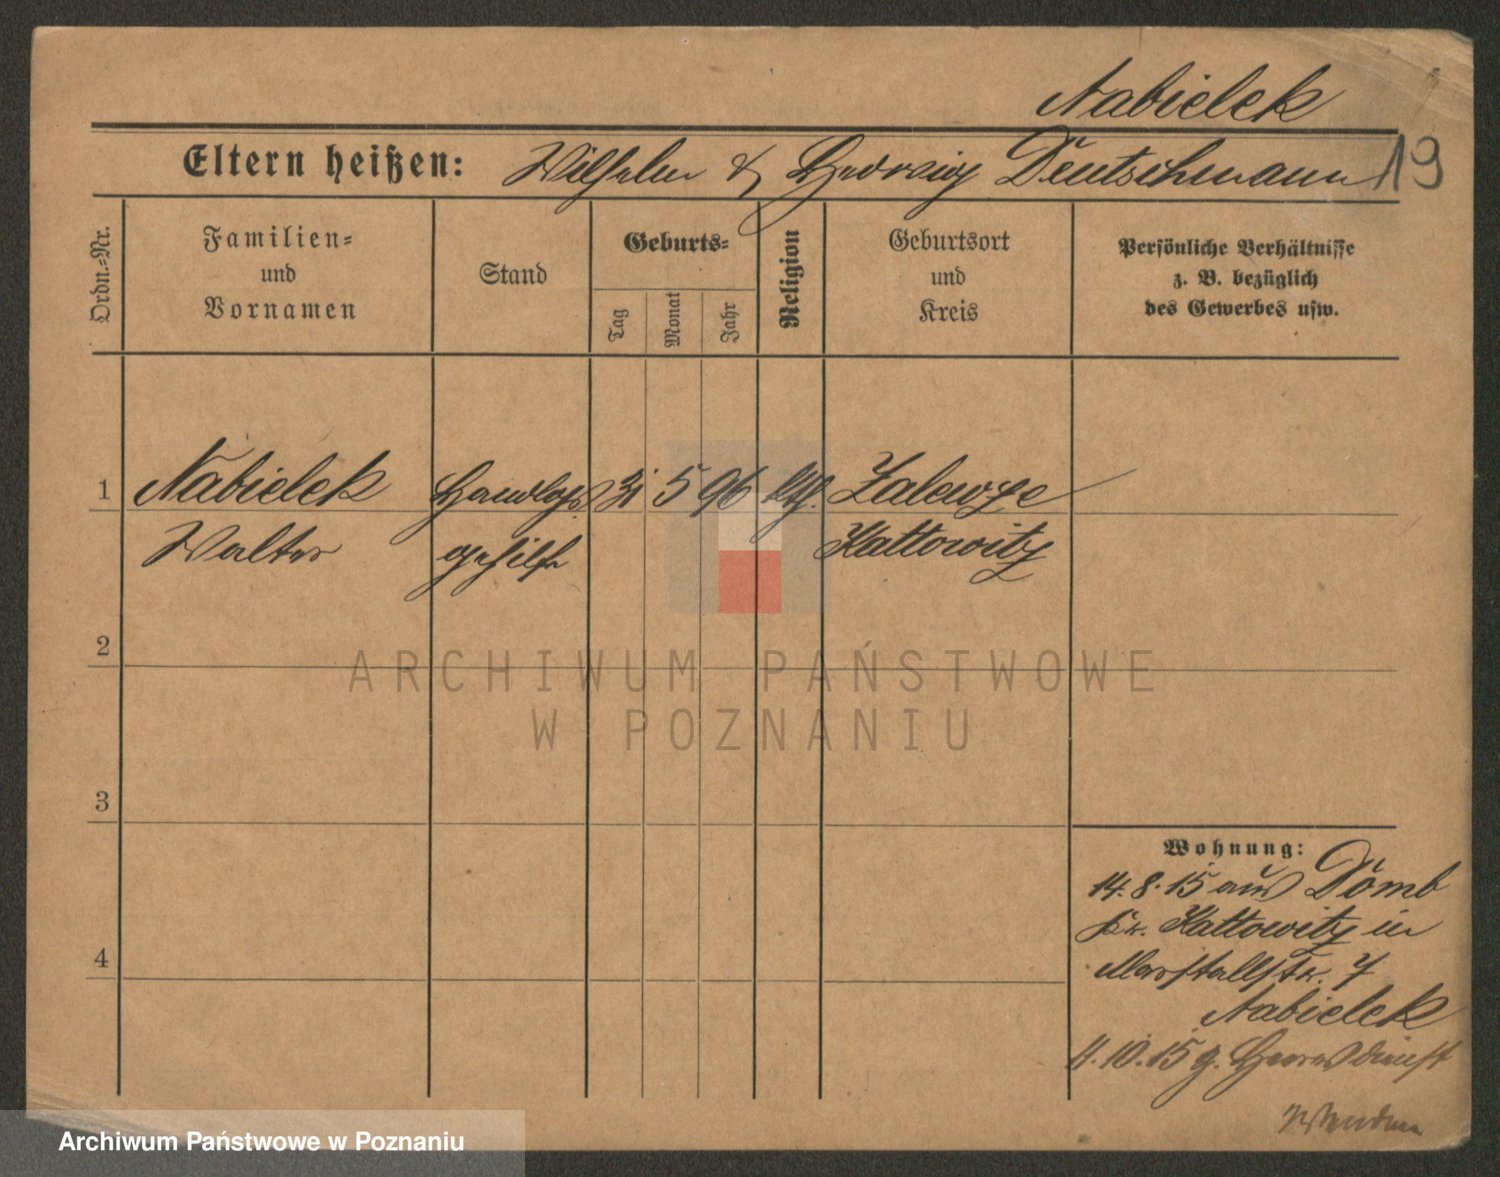 Nabielek
Eltern heißen: Wilhelm & Hedwig Deutschmann 19
Ordn.=Nr.
Familien=
und
Vornamen
Stand
Geburts=
Tag
Monat
Jahr
Religion
Geburtsort
und
Kreis
Persönliche Verhältnisse
z. B. bezüglich
des Gewerbes usw.
1 Nabielek Handlgs 31 5 96 kth. Zalenze
Walter gehilfe Kattowitz
2
3
4
Wohnung:
14.8.15 aus Domb
Kr. Kattowitz in
Marstallstr. 7
Nabielek
11.10.15 z. Heeresdienst
ARCHIWUM PAŃSTWOWE
W POZNANIU
Archiwum Państwowe w Poznaniu